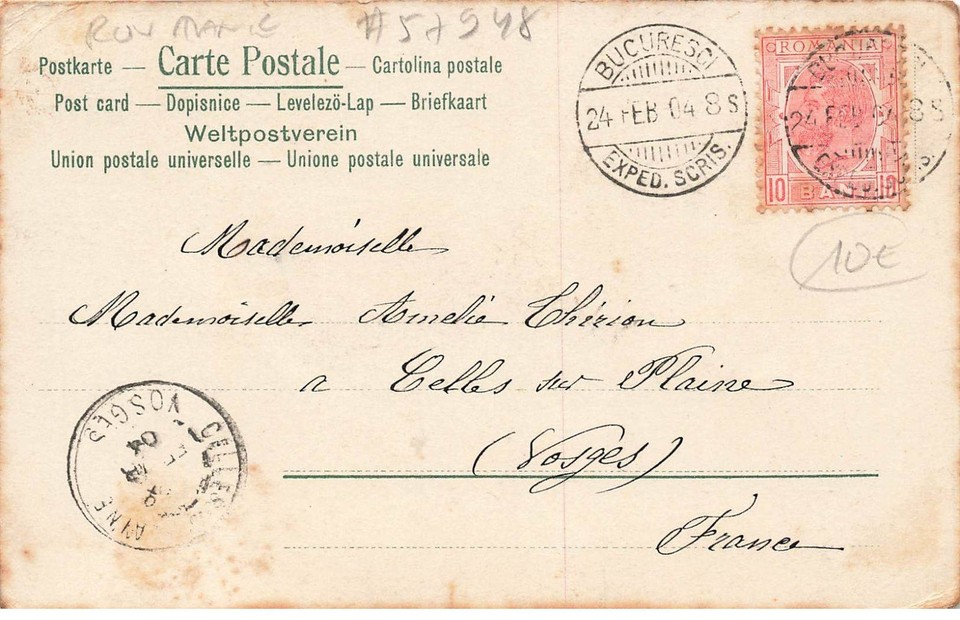 ROUMANIE #57948
Postkarte — Carte Postale — Cartolina postale
Post card — Dopisnice — Levelezö-Lap — Briefkaart
Weltpostverein
Union postale universelle — Unione postale universale
BUCURESCI
24 FEB 04 8 S
EXPED. SCRIS.
ROMANIA
24 FEB 04 8 S
10 BANI 10
10€
Mademoiselle
Mademoiselle Amelie Thirion
a Celles sur Plaine
(Vosges)
France
CELLES
VOSGES
04